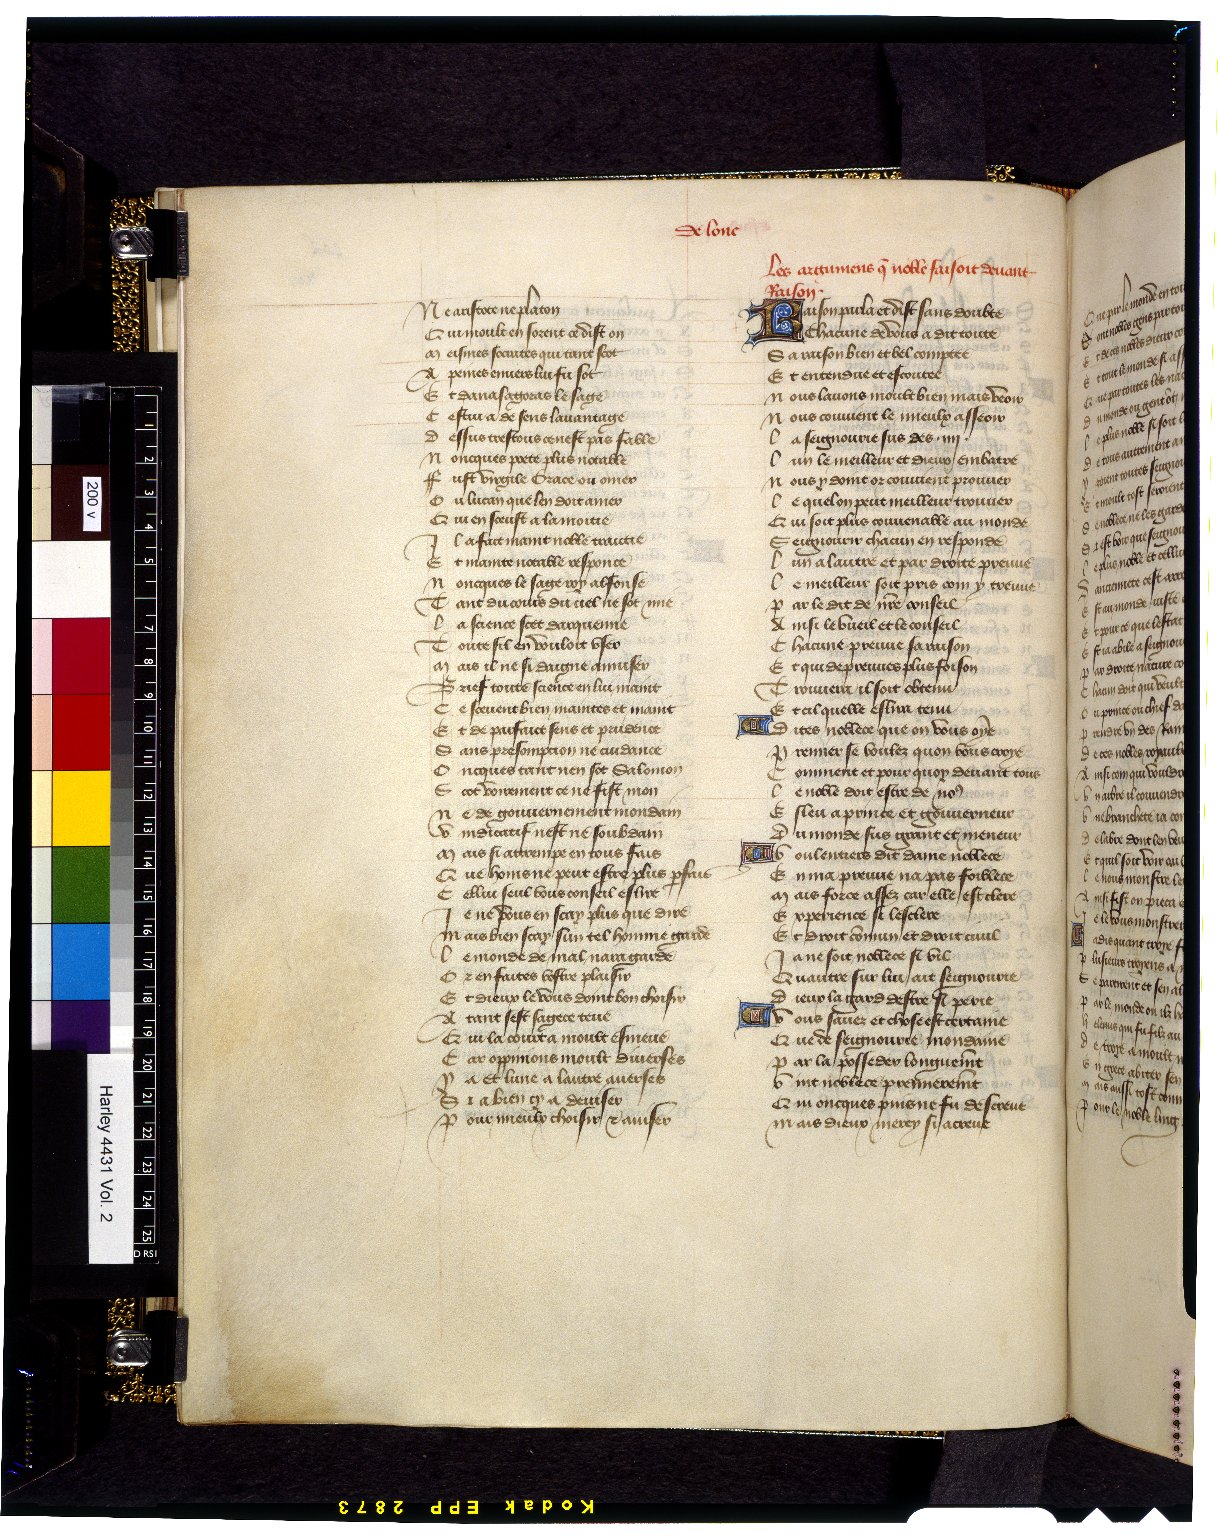 De lonc
N e aristote ne platon
Q ui moult en sorent ce dist on
M eismes socrates qui tant scot
A peines envers lui fu sot
E t danasagoras le sage
C estui a de sens lauantage
D essus trestous ce nest pas fable
N oncques poete plus notable
F ust virgile Orace ou omer
O u lucan que len doit amer
Q ui en sceust a la moitie
I l a fait maint noble traictie
E t mainte notable responce
N oncques le sage roy alfonse
T ant du cours du ciel ne sot mie
L a science scet darquemie
T oute sil en vouloit user
M ais il ne si daigne amuser
B rief toute science en lui maint
C e scevent bien maintes et maint
E t de parfaict sens et prudence
S ans presompcion ne cuidance
O ncques tant nen sot Salomon
S cot voirement ce ne fist mon
N e de gouvernement mondain
V indicatif nest ne soubdain
M ais si attrempe en tous fais
Q ue homs ne peut estre plus pfais
C ellui seul vous conseil eslire
J e ne vous en scay plus que dire
M ais bien scay sun tel homme garde
L e monde de mal nara garde
O r en faites vostre plaisir
E t dieux le vous doint bon choisir
A tant sest sagece teue
Q ui la court a moult esmeue
C ar oppinions moult diverses
Y a et lune a lautre averses
S i a bien cy a deviser
P our mieulx choisir & aviser
Les argumens q̃ noblece faisoit devant
Raison.
R aison parla et dist sans doubte
Chacune de vous a dit toute
S a raison bien et bel comptee
E t entendue et escoutee
N ous lavons moult bien mais veoir
N ous convient le mieulx asseoir
L a seignourie sus des .iiii.
L un le meilleur et dieux embatre
N ous y doint or convient prouver
L e quel on peut meilleur trouver
Q ui soit plus convenable au monde
S eignourir chacun en responde
L un a lautre et par droite preuve
L e meilleur soit pris com y treuve
P ar le dit de nr̃e conseil
A insi le vueil et le conseil
C hacune preuve sa raison
E t qui de preuves plus foison
T rouvera il soit obtenu
E t cil quelle eslira tenu
D ites noblece que on vous oye
P remier se voulez quon vous croye
C omment et pour quoy devant tous
L e noble doit estre de no9
E sleu a prince et gouverneur
D u monde sus grant et meneur
V oulentiers dit dame noblece
E n ma preuve na pas foiblece
M ais force assez car elle est clere
E xperience si lesclere
E t droit comun et droit civil
J a ne soit noblece si vil
Q uautre sur lui ait seignourie
D ieux la gard destre si perie
V ous savez et chose est certaine
Q ue de seignourie mondaine
P ar la posseder longuem̃t
V int noblece premierem̃t
Q ui oncques puis ne fu descreue
M ais dieux mercy si acreue
200 v
Harley 4431 Vol. 2
1
2
3
4
5
7
8
9
10
11
12
13
14
15
16
17
18
19
20
21
22
23
24
25
Kodak EPP 2873